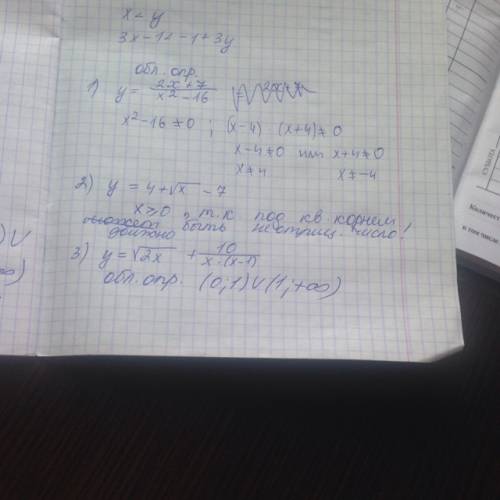 x = y
3x - 12 - 1 + 3y
обл. опр.
1) y = (2x + 7)/(x² - 16)
x² - 16 ≠ 0 ; (x-4) (x+4) ≠ 0
x - 4 ≠ 0 или x + 4 ≠ 0
x ≠ 4 x ≠ -4
2) y = 4 + √x - 7
x ≥ 0, т.к под кв. корнем
должно быть неотриц. число!
3) y = √2x + 10/(x·(x-1))
обл. опр. (0; 1) ∪ (1; +∞)